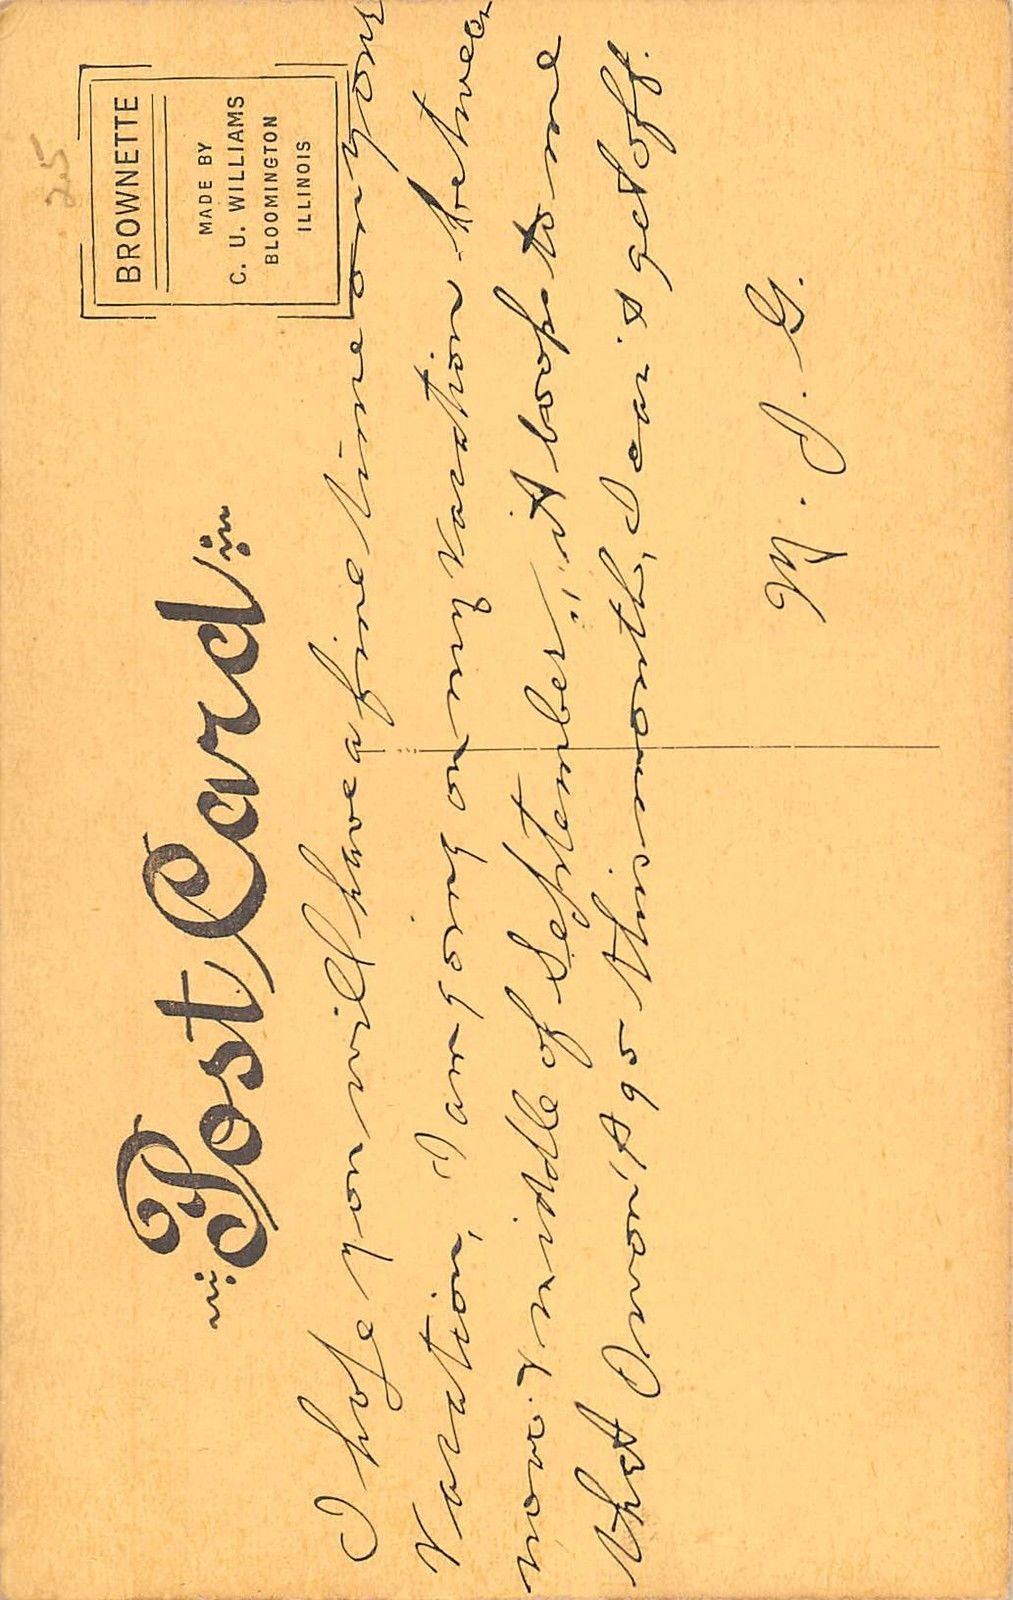 Post Card
BROWNETTE
MADE BY
C. U. WILLIAMS
BLOOMINGTON
ILLINOIS
25
I hope you will have a fine time on your
Vacation, I am going on my vacation between
now & middle of September, it looks to me
that I won't go this month, I can't get off.
M. J. G.